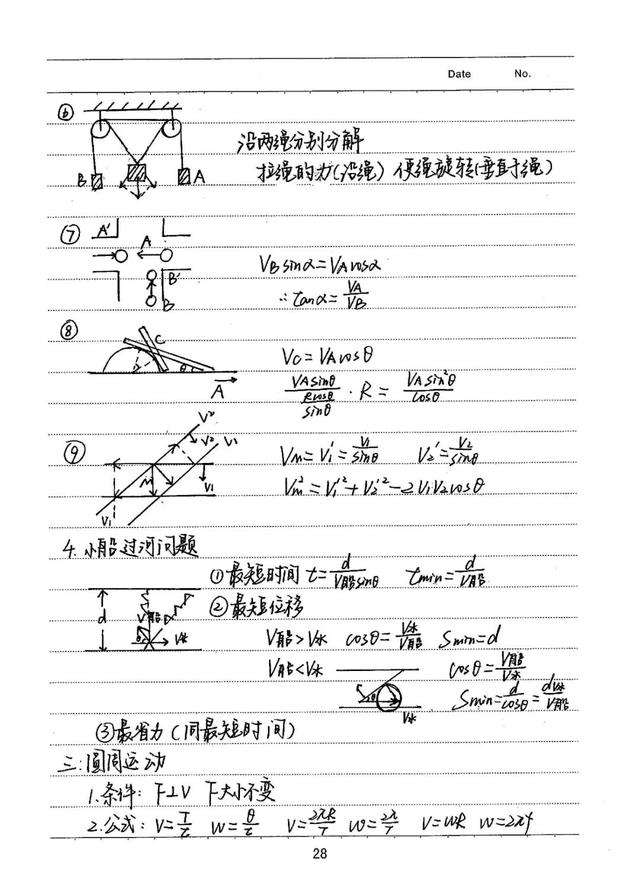 Date No.
⑥
沿两绳分别分解
拉绳的力(沿绳) 使绳旋转(垂直于绳)
B A
⑦ A' A
B'
B
VB sinα = VA cosα
∴ tanα = VA/VB
⑧ C
θ
A
VC = VA cosθ
(VA sinθ)/(R cosθ/sinθ) · R = (VA sin²θ)/cosθ
⑨ V2 V2 V1
M V1
V1
Vm = V1' = V1/sinθ V2' = V2/sinθ
Vm² = V1'² + V2'² - 2V1V2cosθ
4. 小船过河问题
① 最短时间 t = d/(V船 sinθ) tmin = d/V船
② 最短位移
d V船 θ V水
V船 > V水 cosθ = V水/V船 Smin = d
V船 < V水 cosθ = V船/V水
θ V水
Smin = d/cosθ = dV水/V船
③ 最省力 (同最短时间)
三. 圆周运动
1. 条件: F⊥V F大小不变
2. 公式: V = l/t W = θ/t V = 2πR/T W = 2π/T V = WR W = 2πf
28